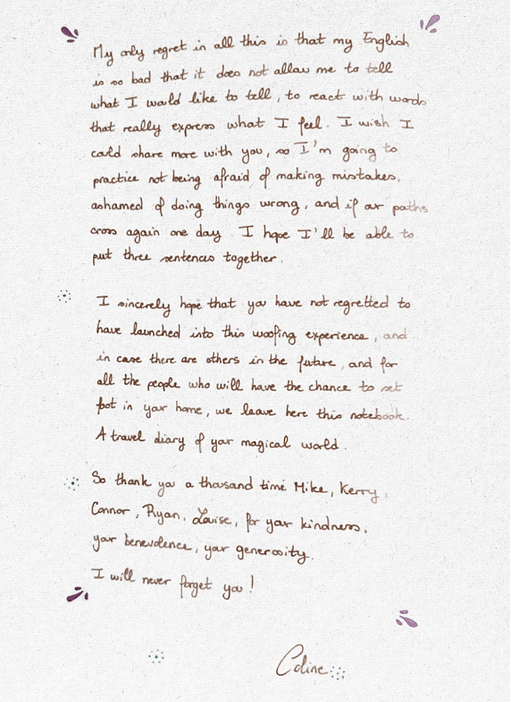 My only regret in all this is that my English
is so bad that it does not allow me to tell
what I would like to tell, to react with words
that really express what I feel. I wish I
could share more with you, so I'm going to
practice not being afraid of making mistakes,
ashamed of doing things wrong, and if our paths
cross again one day. I hope I'll be able to
put three sentences together.
I sincerely hope that you have not regretted to
have launched into this woofing experience, and
in case there are others in the future, and for
all the people who will have the chance to set
foot in your home, we leave here this notebook.
A travel diary of your magical world.
So thank you a thousand time Mike, Kerry,
Connor, Ryan, Louise, for your kindness,
your benevolence, your generosity.
I will never forget you!
Coline